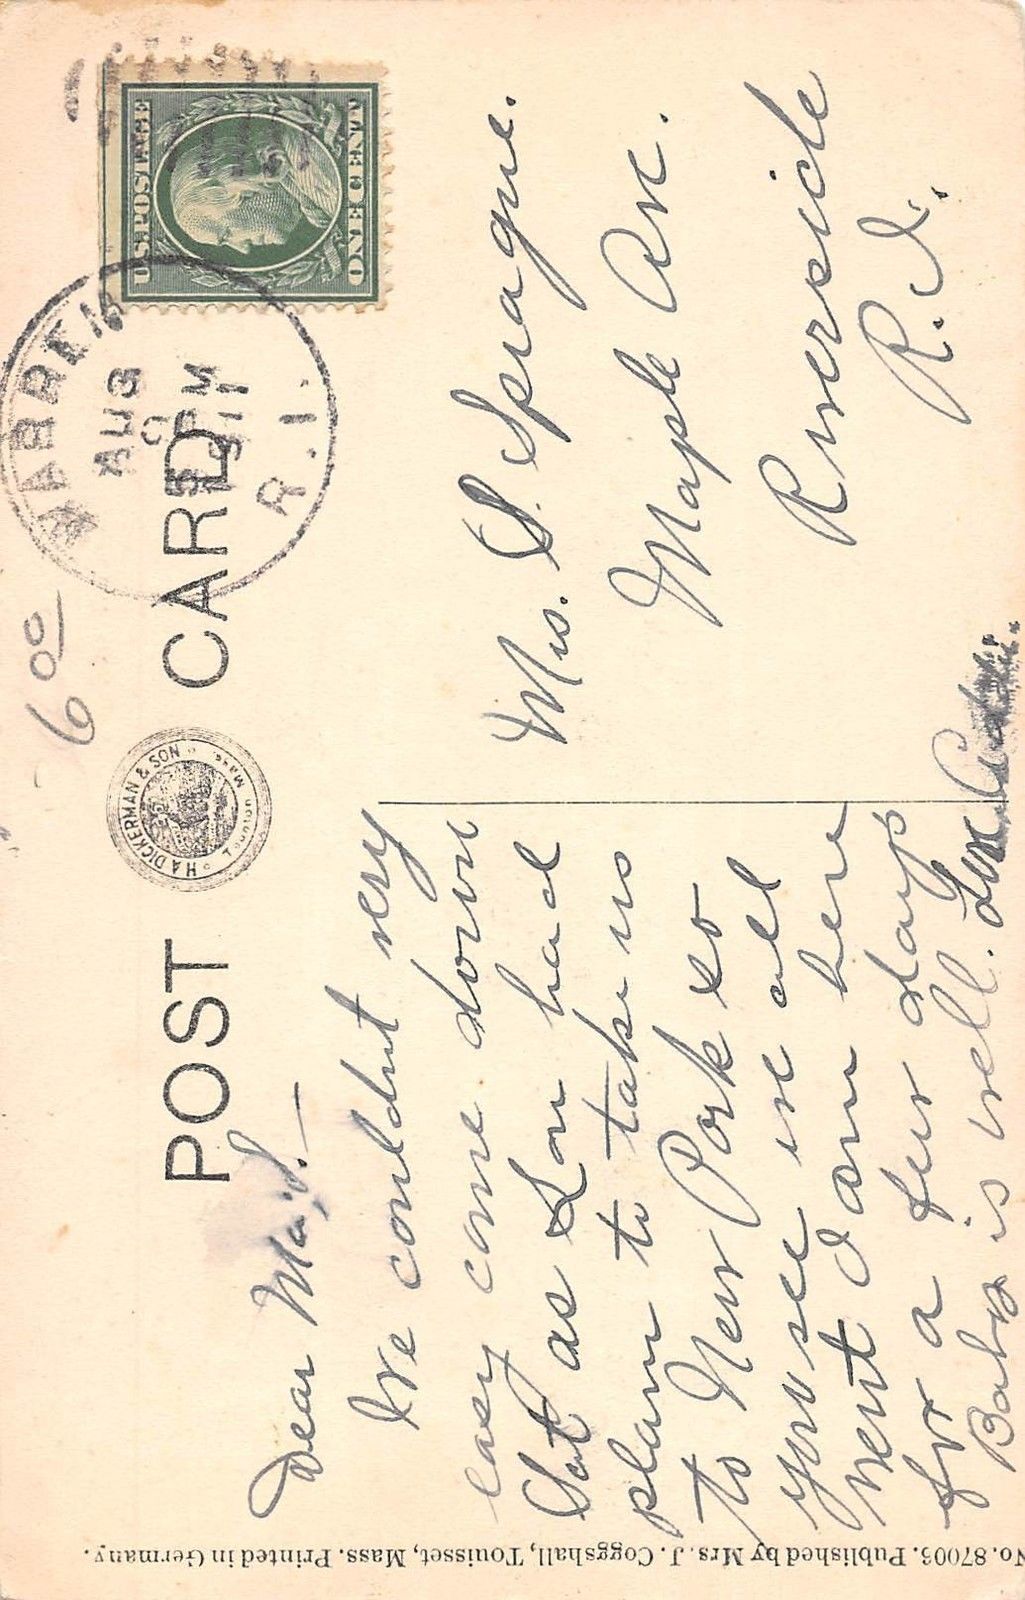 POST CARD
H A DICKERMAN & SON Taunton Mass.
U.S. POSTAGE
ONE CENT
WARREN
AUG
PM
1911
R.I.
6 00
Dear Ma;—
We couldnt very
easy come down
Sat as Lou had
plann to take us
to New Park so
you see we all
went I am here
for a few days
Baby is well. Love
Mrs. S. Sprague.
Maple Ave.
Riverside
R.I.
No. 87006. Published by Mrs. J. Coggshall, Touisset, Mass. Printed in Germany.